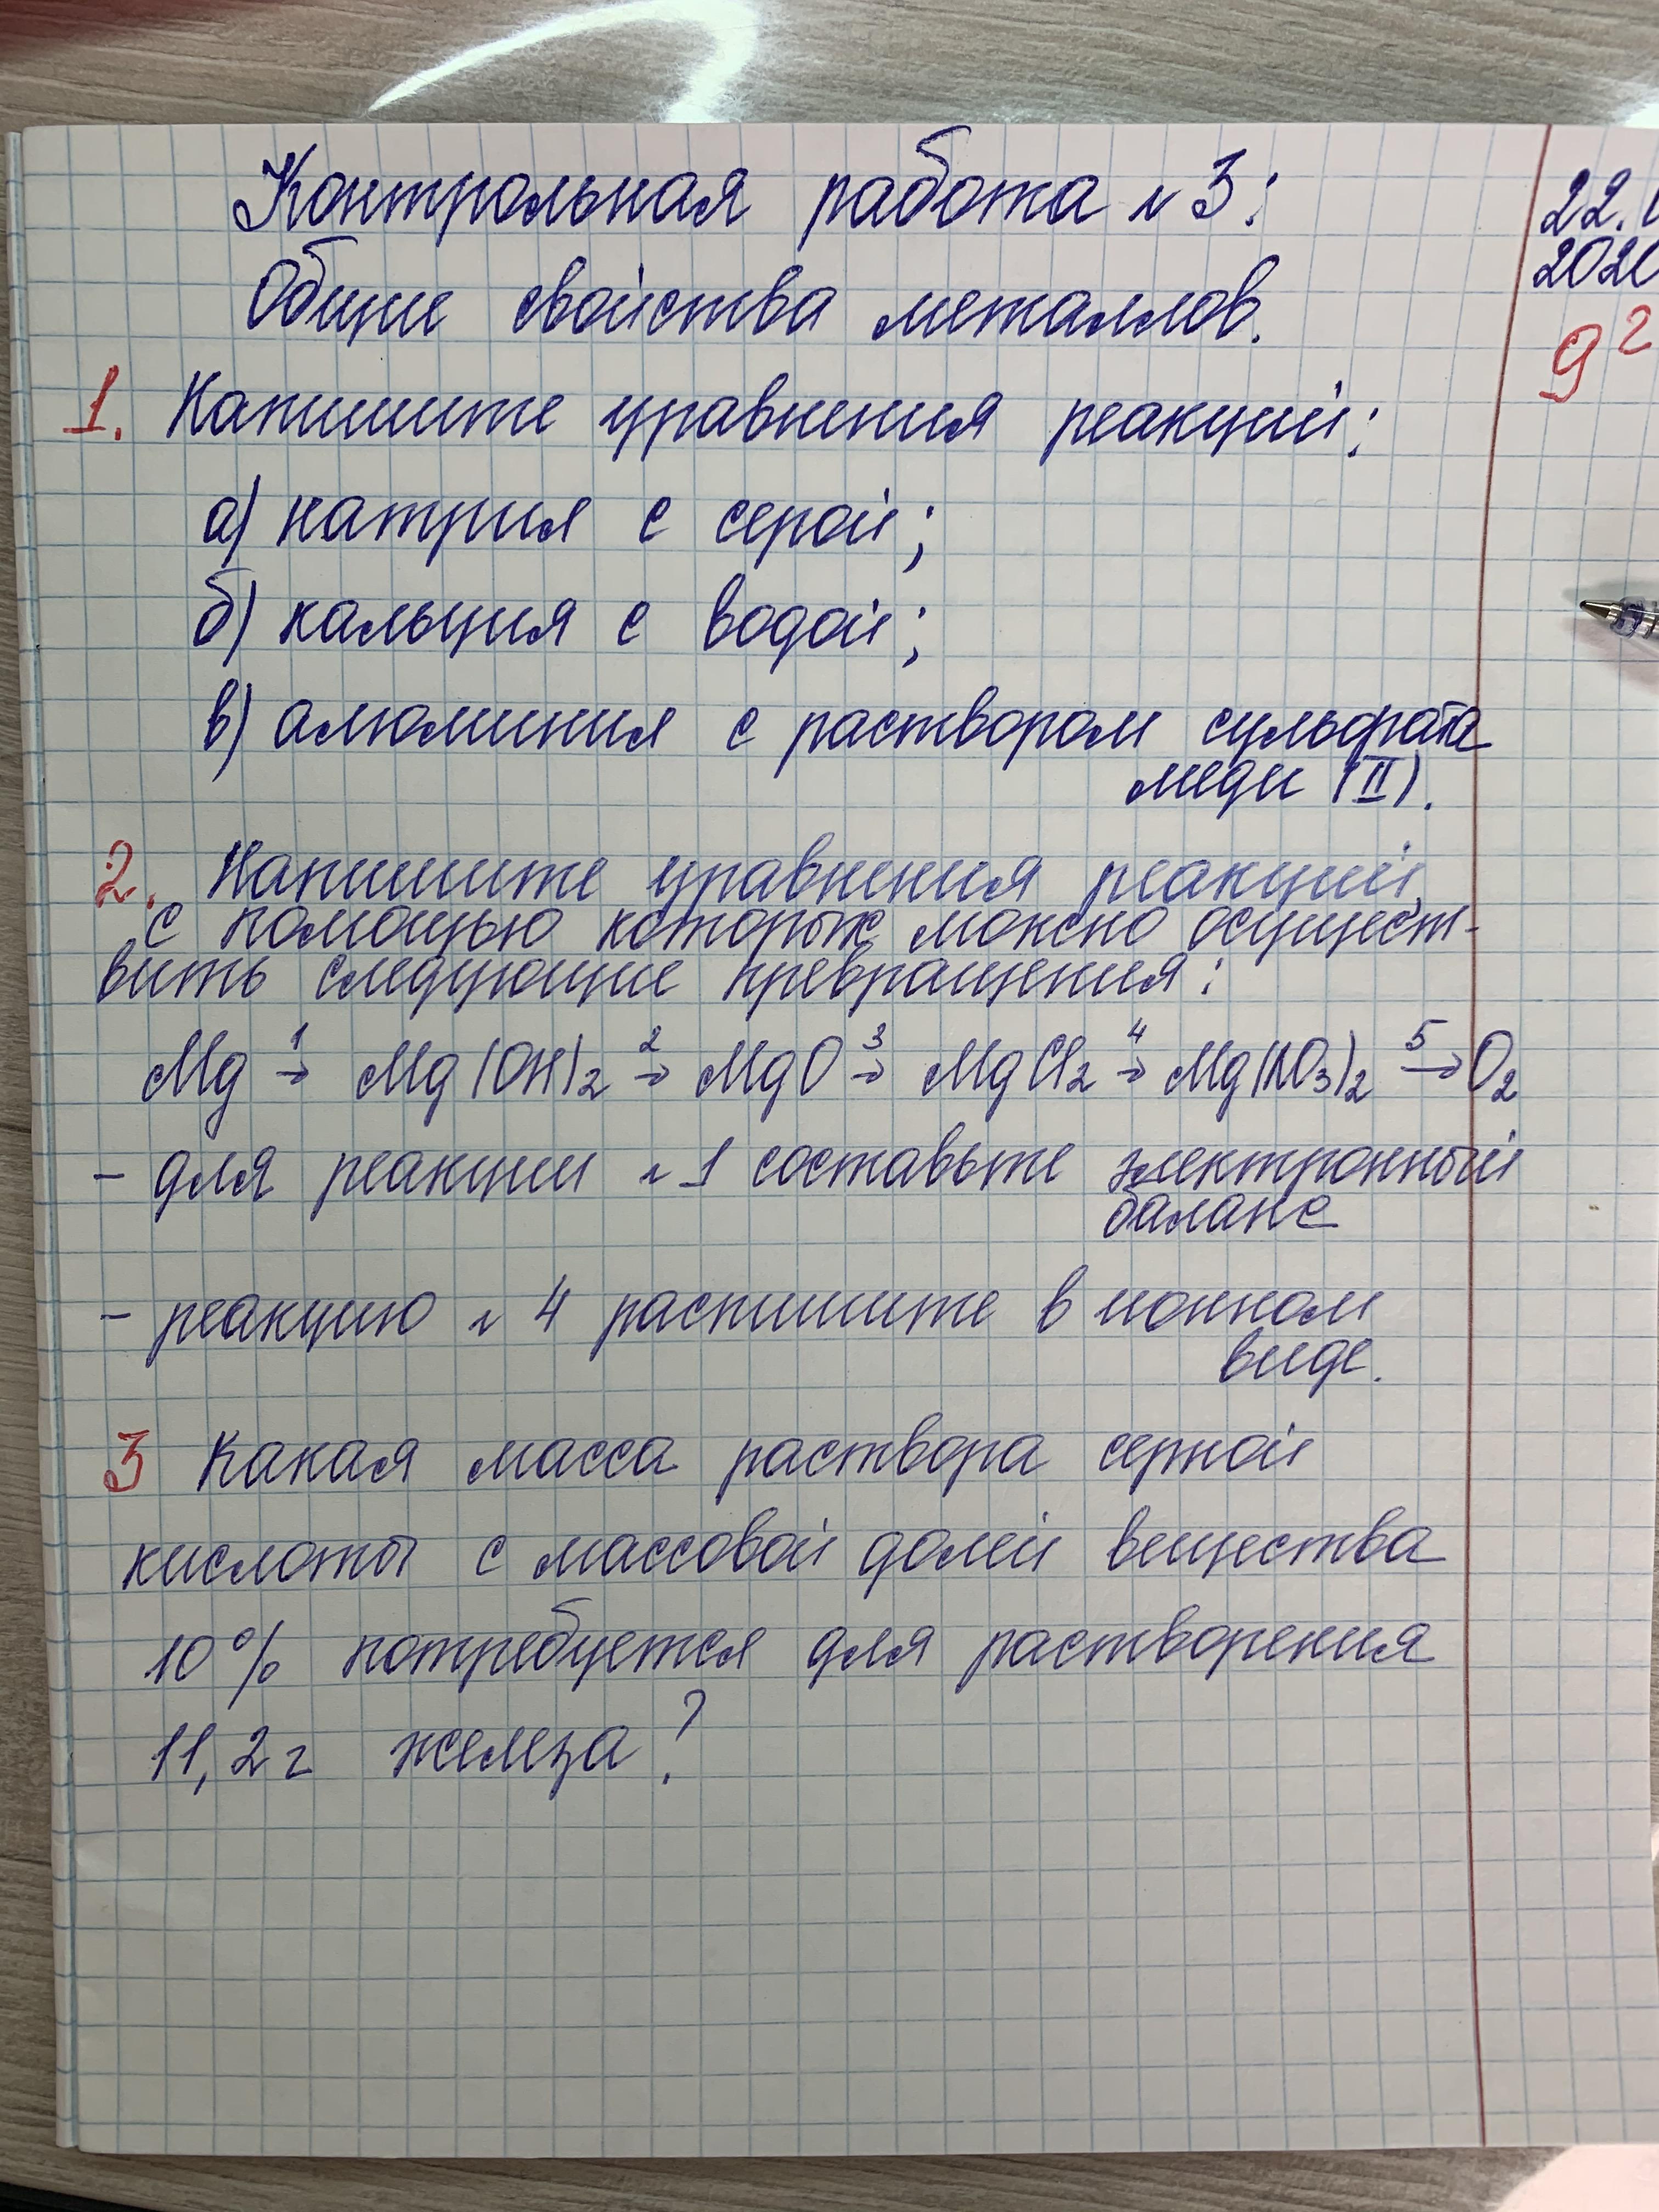 Контрольная работа № 3:
Общие свойства металлов.
22.
202
9г
1. Напишите уравнения реакций:
а) натрия с серой;
б) кальция с водой;
в) алюминия с раствором сульфата
меди (II).
2. Напишите уравнения реакций,
с помощью которых можно осущест-
вить следующие превращения:
Mg →¹ Mg(OH)₂ →² MgO →³ MgCl₂ →⁴ Mg(NO₃)₂ →⁵ O₂
- для реакции № 1 составьте электронный
баланс
- реакцию № 4 распишите в ионном
виде.
3 Какая масса раствора серной
кислоты с массовой долей вещества
10% потребуется для растворения
11,2 г железа?